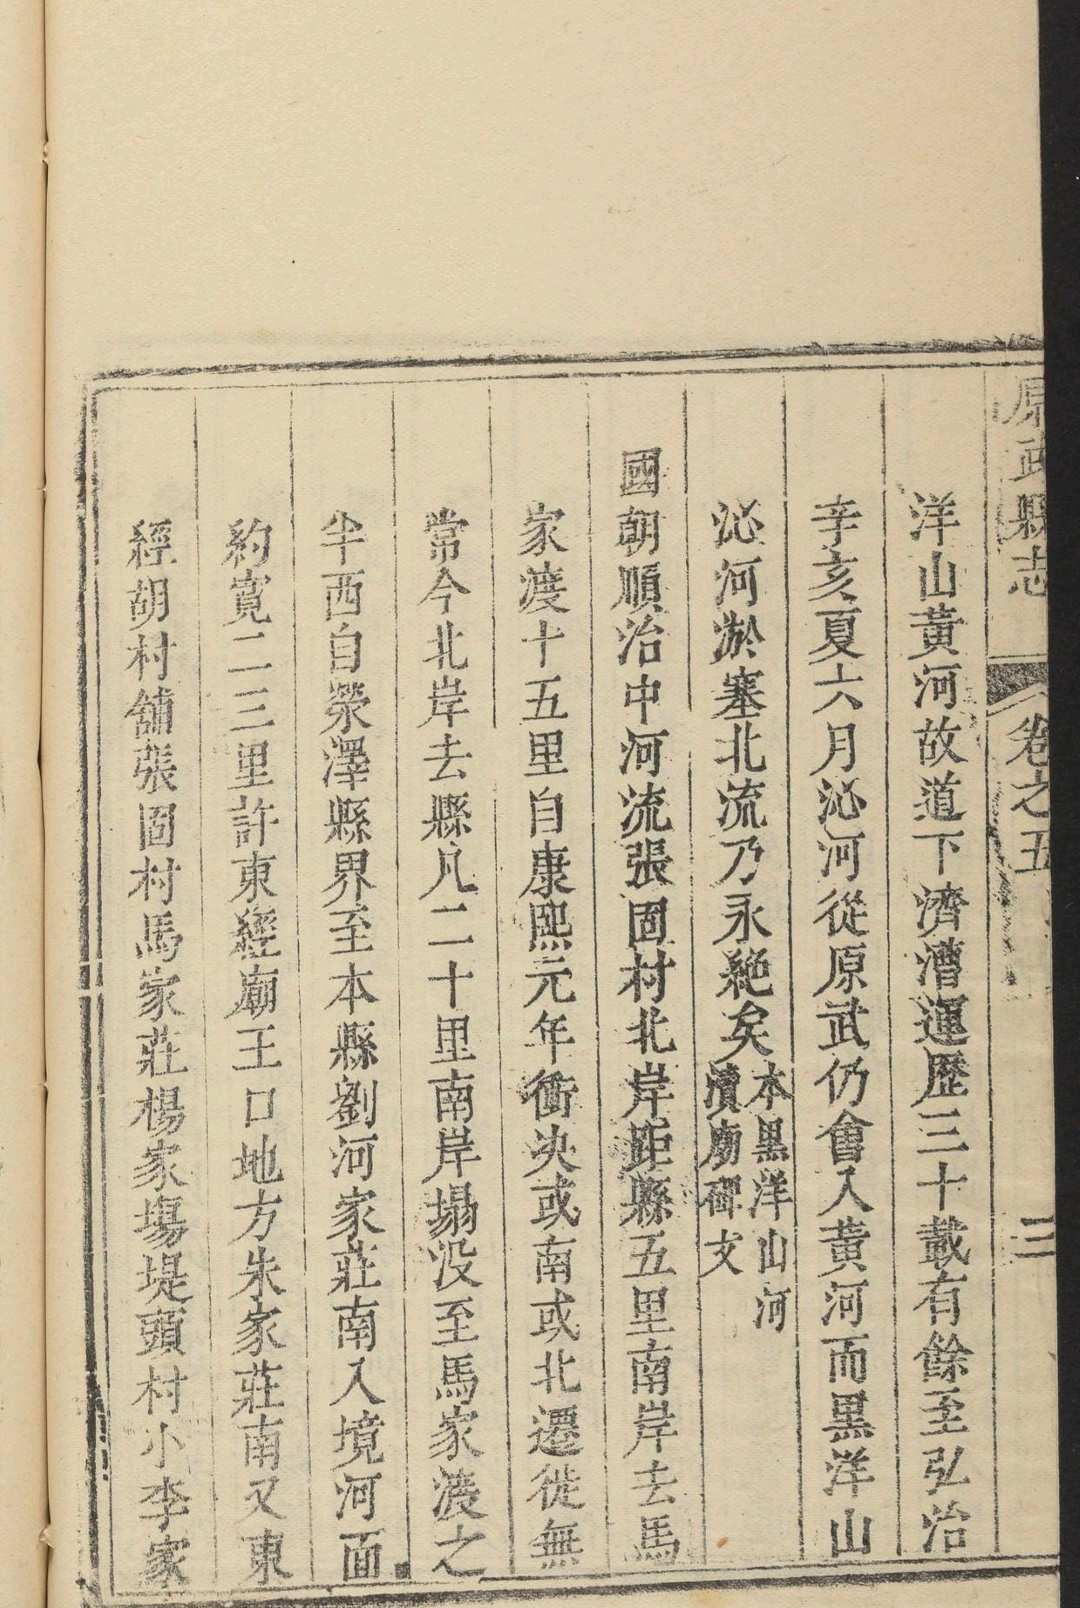 原武縣志 卷之五 三
洋山黃河故道下濟漕運歷三十載有餘至弘治
辛亥夏六月沁河從原武仍會入黃河而黑洋山
沁河淤塞北流乃永絕矣本黑洋山河瀆廟碑文
國朝順治中河流張固村北岸距縣五里南岸去馬
家渡十五里自康熙元年衝决或南或北遷徙無
常今北岸去縣凡二十里南岸塌没至馬家渡之
半西自滎澤縣界至本縣劉河家莊南入境河面
約寬二三里許東經廟王口地方朱家莊南又東
經胡村舖張固村馬家莊楊家塲堤頭村小李家